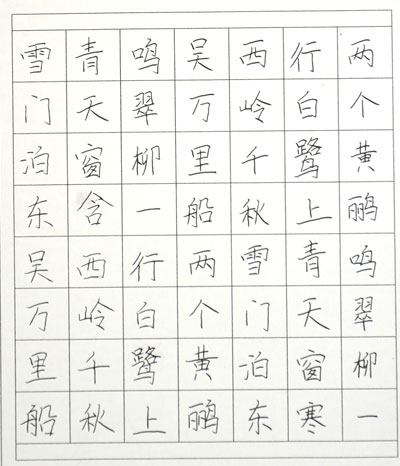 雪青鸣吴西行两
门天翠万岭白个
泊窗柳里千鹭黄
东含一船秋上鹂
吴西行两雪青鸣
万岭白个门天翠
里千鹭黄泊窗柳
船秋上鹂东寒一